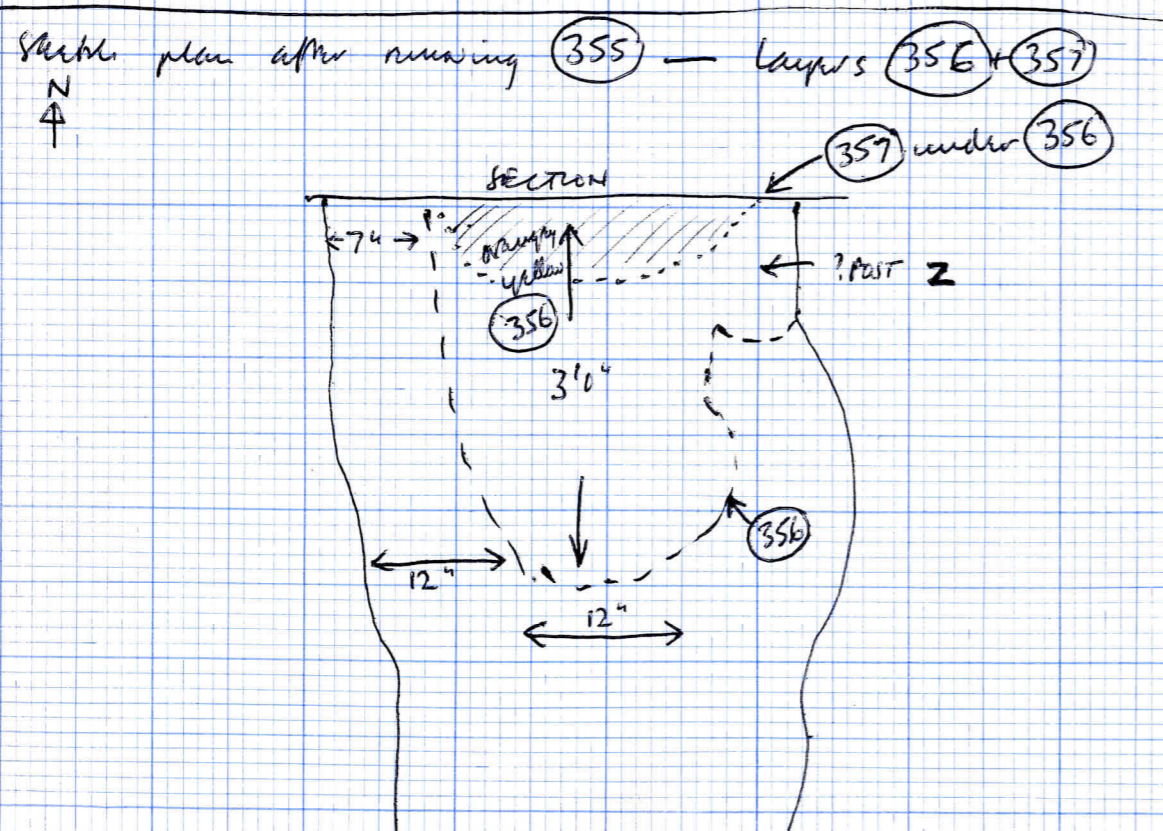 Sketch plan after removing 355 — Layers 356 + 357
N
357 under 356
SECTION
7"
orangey
yellow
? POST Z
356
3'0"
356
12"
12"